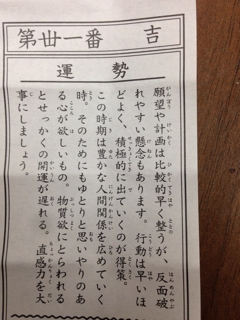 第丗一番　吉
運勢
願望や計画は比較的早く整うが、反面破
れやすい懸念もあります。行動は早いほ
どよく、積極的に出ていくのが得策。
この時期は豊かな人間関係を広めていく
時。そのためにもゆとりと思いやりのあ
る心が欲しいもの。物質欲にとらわれる
とせっかくの開運が遅れる。直感力を大
事にしましょう。